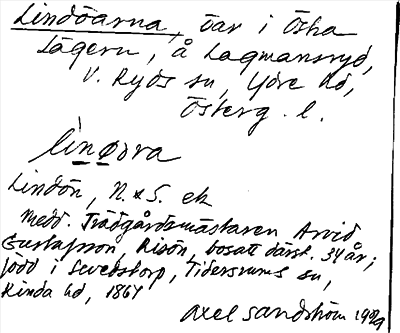 Lindöarna, öar i Östra
Lägern, å Lagmansryd,
V. Ryds sn, Ydre hd,
Österg. l.
lìnøɹra
Lindön, N. & S. ek
medd. Trädgårdsmästaren Arvid
Gustafsson, Risön, bosatt därst. 34 år;
född i Sevedstorp, Tidersrums sn,
Kinda hd, 1864
Axel Sandström 1929